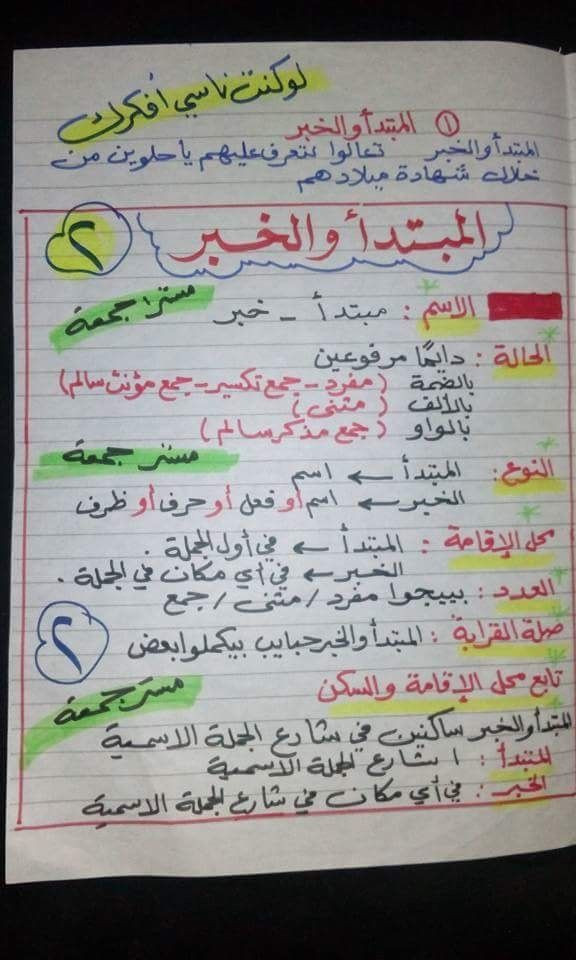 لو كنت ناسي أفكرك
① المبتدأ والخبر
المبتدأ والخبر تعالوا نتعرف عليهم يا حلوين من
خلال شهادة ميلادهم
المبتدأ والخبر
٢
الاسم : مبتدأ - خبر
مستر جمعة
الحالة : دايمًا مرفوعين
بالضمة (مفرد - جمع تكسير - جمع مؤنث سالم)
بالألف (مثنى)
بالواو (جمع مذكر سالم)
مستر جمعة
النوع : المبتدأ ← اسم
الخبر ← اسم أو فعل أو حرف أو ظرف
محل الإقامة : المبتدأ ← في أول الجملة .
الخبر ← في أي مكان في الجملة .
العدد : بييجوا مفرد / مثنى / جمع
صلة القرابة : المبتدأ والخبر حبايب بيكملوا بعض
٢
تابع محل الإقامة والسكن
مستر جمعة
المبتدأ والخبر ساكنين في شارع الجملة الاسمية
المبتدأ : ١ شارع الجملة الاسمية
الخبر : في أي مكان في شارع الجملة الاسمية